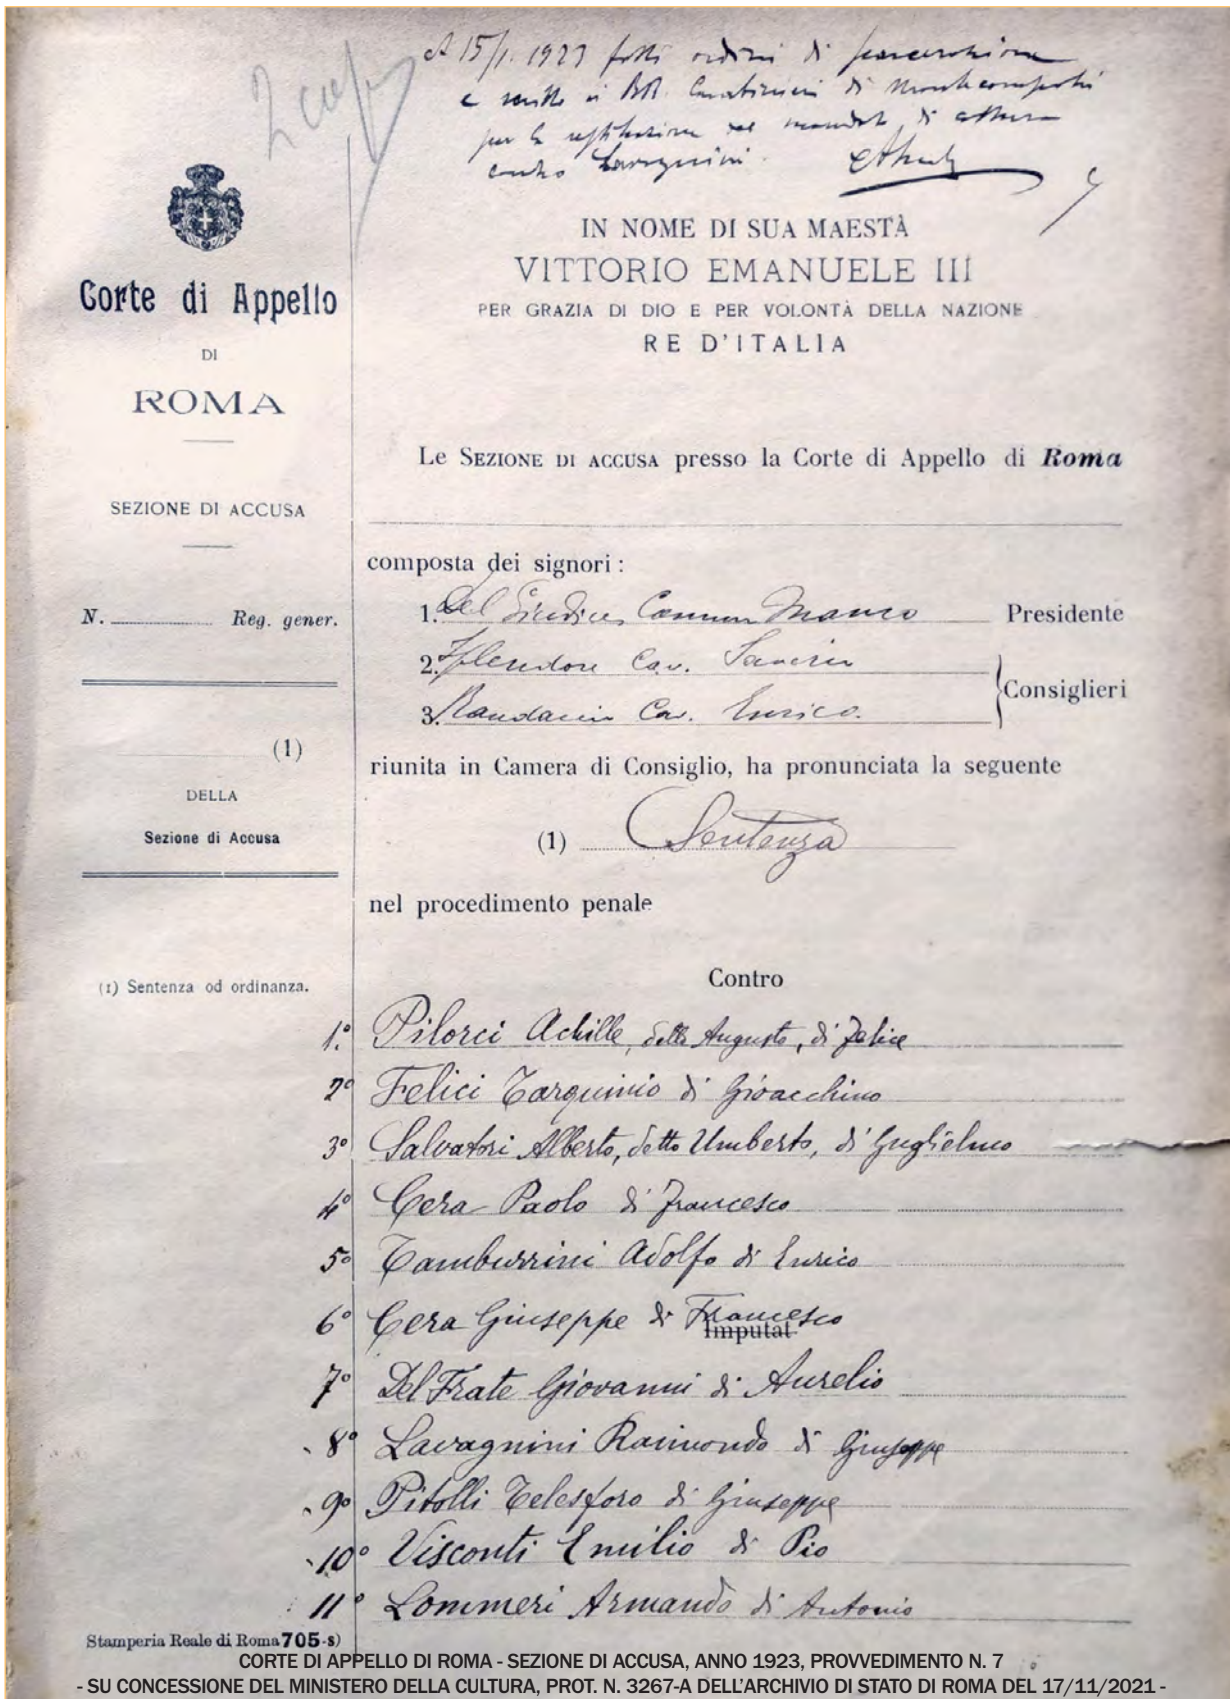 2 copie
A 15/1. 1923 fatti ordini di scarcerazione
e scritto ai RR. Carabinieri di Montecompatri
per la restituzione del mandato di cattura
contro Lavagnini.
Corte di Appello
DI
ROMA
SEZIONE DI ACCUSA
N. Reg. gener.
(1)
DELLA
Sezione di Accusa
(1) Sentenza od ordinanza.
IN NOME DI SUA MAESTÀ
VITTORIO EMANUELE III
PER GRAZIA DI DIO E PER VOLONTÀ DELLA NAZIONE
RE D'ITALIA
Le SEZIONE DI ACCUSA presso la Corte di Appello di Roma
composta dei signori :
1. Del Giudice, Comm Marco Presidente
2. Splendore Cav. Saverio
Consiglieri
3. Cav. Enrico.
riunita in Camera di Consiglio, ha pronunciata la seguente
(1) Sentenza
nel procedimento penale
Contro
1° Pilorci Achille, detto Augusto, di Felice
2° Felici Tarquinio di Gioacchino
3° Salvatori Alberto, detto Umberto, di Guglielmo
4° Cera Paolo di Francesco
5° Tamburrini Adolfo di Enrico
6° Cera Giuseppe di Francesco
Imputat
7° Del Frate Giovanni di Aurelio
8° Lavagnini Raimondo di Giuseppe
9° Pitolli Telesforo di Giuseppe
10° Visconti Emilio di Pio
11° Lommeri Armando di Antonio
Stamperia Reale di Roma 705-s)
CORTE DI APPELLO DI ROMA - SEZIONE DI ACCUSA, ANNO 1923, PROVVEDIMENTO N. 7
- SU CONCESSIONE DEL MINISTERO DELLA CULTURA, PROT. N. 3267-A DELL'ARCHIVIO DI STATO DI ROMA DEL 17/11/2021 -